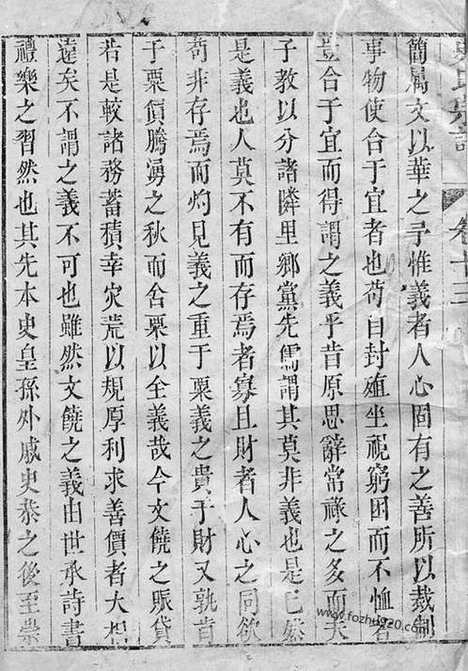 史氏宗譜 卷十三
簡屬文以華之予惟義者人心固有之善所以裁制
事物使合于宜者也苟自封殖坐視窮困而不恤者
豈合于宜而得謂之義乎昔原思辭常祿之多而夫
子教以分諸隣里鄉黨先儒謂其莫非義也是已然
是義也人莫不有而存焉者寡且財者人心之同欲
苟非存焉而灼見義之重于粟義之貴于財又孰肯
于粟價騰湧之秋而舍粟以全義哉今文饒之賑貸
若是較諸務蓄積幸灾荒以規厚利求善價者大相
遠矣不謂之義不可也雖然文饒之義由世承詩書
禮樂之習然也其先本史皇孫外戚史恭之後至崇
www.fozhu920.com